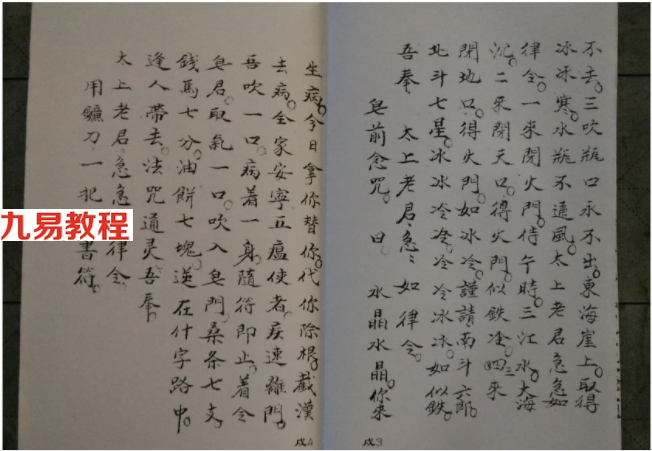 不去。三吹瓶口永不出。東海崖上。取得
冰冰寒。水瓶不通風。太上老君急急如
律令。一來閉火門。侍午時。三江水。大海
沉。二來閉天口。得火門。似鉄冷。三四來
閉地口。得火門。如冰冷。謹請南斗六郎
北斗七星。冰冰冷冷冷冷冰冰。如似鉄。
吾奉 太上老君急〻如律令。
皂前念咒。曰 水晶水晶。你來
戌3
生病。今日拿你替你。代你除根。截漢
去病。合家安寧五瘟使者。疾速離門。
吾吹一口。病着一身。隨符即止。着令
皂君。取氣一口。吹入皂門。桑条七支。
錢馬七分。油餅七塊。送在什字路中。
逢人帶去。法咒通灵吾奉
太上老君。急急 律令
用鑣刀一把 書符。
戌4
九易教程